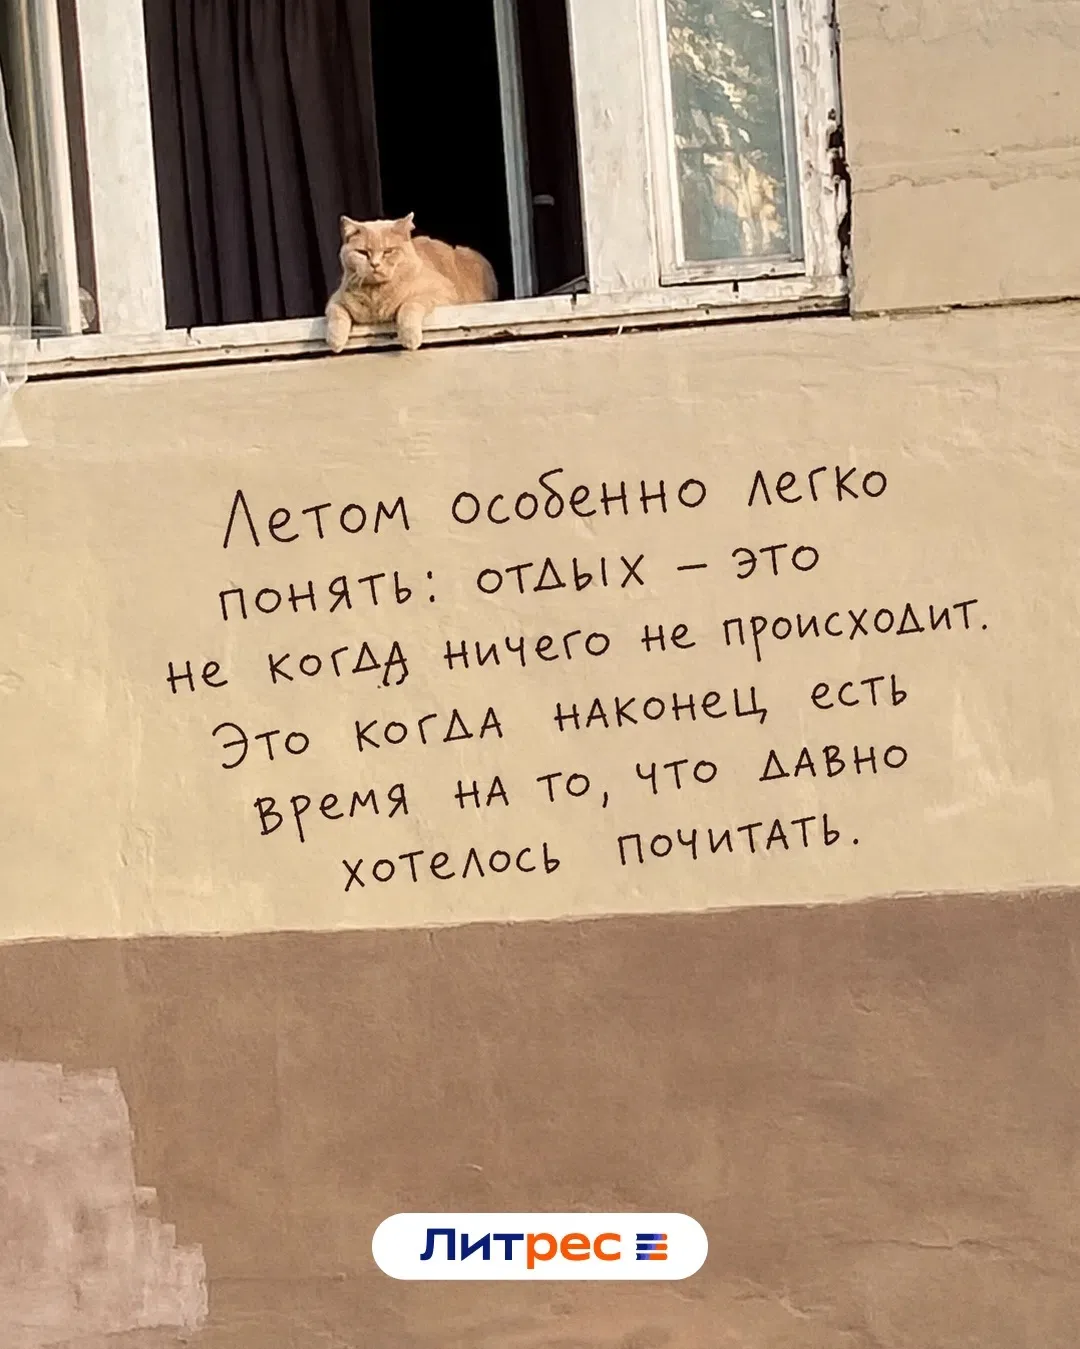 Летом особенно легко
понять: отдых – это
не когда ничего не происходит.
Это когда наконец есть
время на то, что давно
хотелось почитать.
Литрес